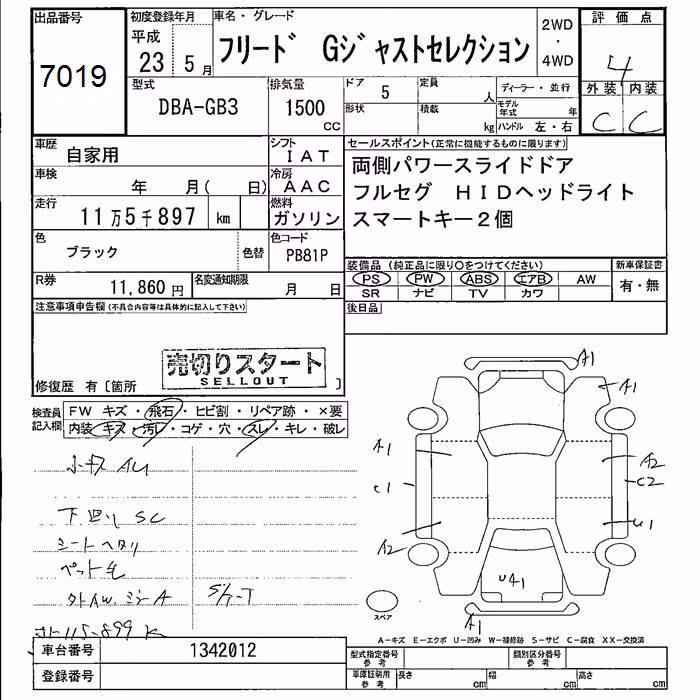 出品番号 初度登録年月 車名・グレード 2WD・4WD 評価点
7019 平成23 5月 フリード Gジャストセレクション 4
型式 排気量 ドア 5 定員 人 ディーラー・並行 外装 内装
DBA-GB3 1500 CC 形状 積載 kg モデル年式 年 ハンドル 左・右 C C
車歴 自家用 シフト IAT
セールスポイント(正常に機能するものに限ります)
両側パワースライドドア
フルセグ HIDヘッドライト
スマートキー2個
車検 年 月( 日) 冷房 AAC
走行 11万5千897 km 燃料 ガソリン
色 ブラック 色替 色コード PB81P
装備品(純正品に限り○をつけてください) 新車保証書
PS PW ABS エアB AW 有・無
SR ナビ TV カワ
R券 11,860円 名変通知期限 月 日
後日品
注意事項申告欄(不具合内容等は具体的に記入して下さい)
売切りスタート
SELLOUT
修復歴 有〔箇所 〕
検査員記入欄 FW キズ・飛石・ヒビ割・リペア跡・×要
内装 キズ・汚レ・コゲ・穴・スレ・キレ・破レ
小キズ AU
下廻り SC
シートヘタリ
ペット毛
A1
A1
A1
A2
C1
C2
A2
U1
UA1
A1
スペア
A-キズ E-エクボ U-凹み W-補修跡 S-サビ C-腐食 XX-交換済
車台番号 1342012
型式指定番号 参考 類別区分番号 参考
登録番号
車庫証明用 参考 長さ cm 幅 cm 高さ cm